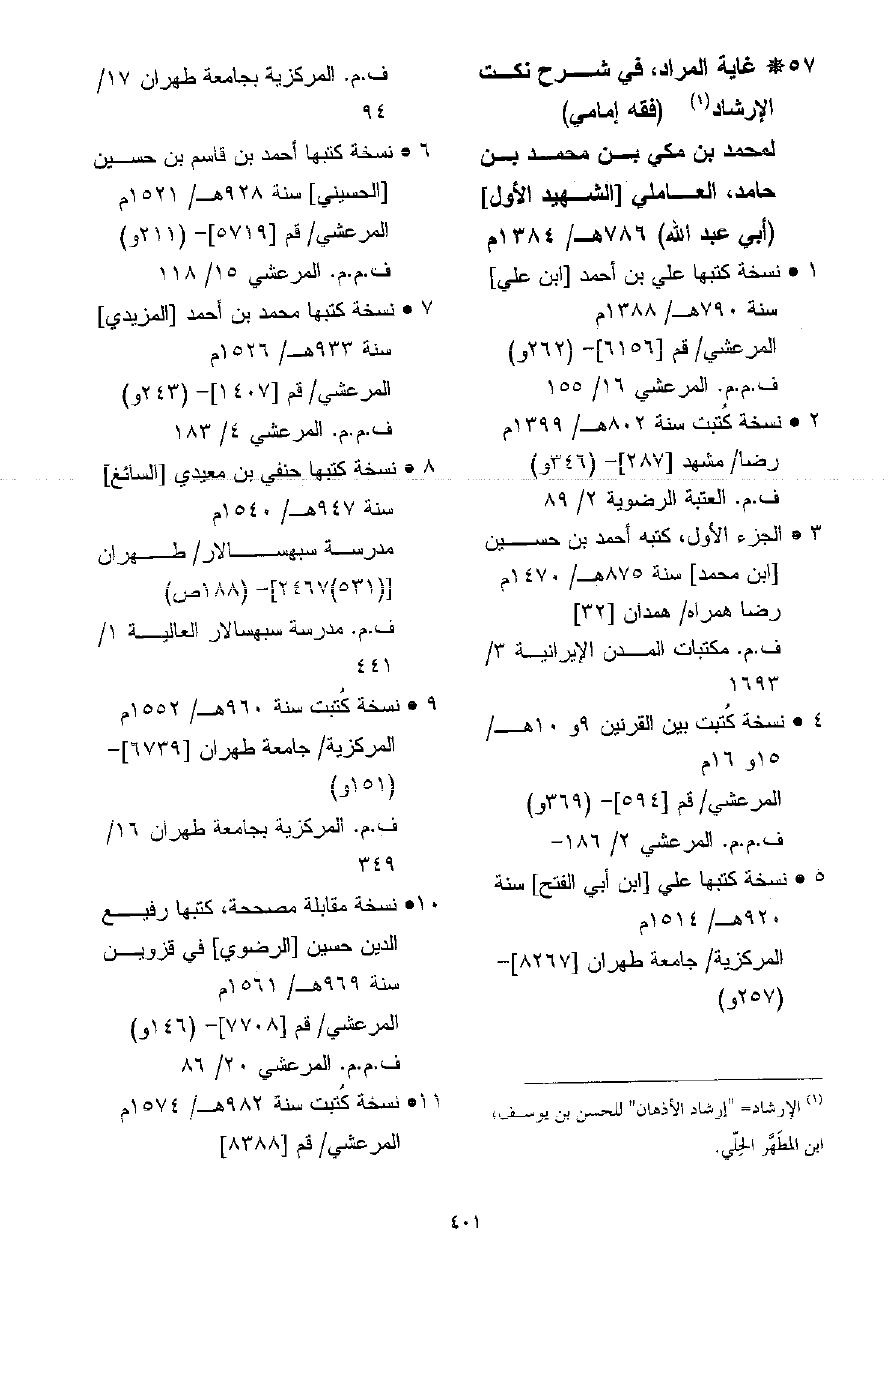 ٥٧ * غاية المراد، في شرح نكت
الإرشاد(١) (فقه إمامي)
لمحمد بن مكي بن محمد بن
حامد، العاملي [الشهيد الأول]
(أبي عبد الله) ٧٨٦هـ/ ١٣٨٤م
١ • نسخة كتبها علي بن أحمد [ابن علي]
سنة ٧٩٠هـ/ ١٣٨٨م
المرعشي/ قم [٦١٥٦]- (٢٦٢و)
ف.م.م. المرعشي ١٦/ ١٥٥
٢ • نسخة كُتبت سنة ٨٠٢هـ/ ١٣٩٩م
رضا/ مشهد [٢٨٧]- (٣٤٦و)
ف.م. العتبة الرضوية ٢/ ٨٩
٣ • الجزء الأول، كتبه أحمد بن حسين
[ابن محمد] سنة ٨٧٥هـ/ ١٤٧٠م
رضا همراه/ همدان [٣٢]
ف.م. مكتبات المدن الإيرانية ٣/
١٦٩٣
٤ • نسخة كُتبت بين القرنين ٩و ١٠هـ/
١٥و ١٦م
المرعشي/ قم [٥٩٤]- (٣٦٩و)
ف.م.م. المرعشي ٢/ ١٨٦-
٥ • نسخة كتبها علي [ابن أبي الفتح] سنة
٩٢٠هـ/ ١٥١٤م
المركزية/ جامعة طهران [٨٢٦٧]-
(٢٥٧و)
(١) الإرشاد= "إرشاد الأذهان" للحسن بن يوسف،
ابن المطَهَّر الحِلّي.
ف.م. المركزية بجامعة طهران ١٧/
٩٤
٦ • نسخة كتبها أحمد بن قاسم بن حسين
[الحسيني] سنة ٩٢٨هـ/ ١٥٢١م
المرعشي/ قم [٥٧١٩]- (٢١١و)
ف.م.م. المرعشي ١٥/ ١١٨
٧ • نسخة كتبها محمد بن أحمد [المزيدي]
سنة ٩٣٣هـ/ ١٥٢٦م
المرعشي/ قم [١٤٠٧]- (٢٤٣و)
ف.م.م. المرعشي ٤/ ١٨٣
٨ • نسخة كتبها حنفي بن معيدي [السائغ]
سنة ٩٤٧هـ/ ١٥٤٠م
مدرسة سبهسالار/ طهران
[(٥٣١)٢٤٦٧]- (١٨٨ص)
ف.م. مدرسة سبهسالار العالية ١/
٤٤١
٩ • نسخة كُتبت سنة ٩٦٠هـ/ ١٥٥٢م
المركزية/ جامعة طهران [٦٧٣٩]-
(١٥١و)
ف.م. المركزية بجامعة طهران ١٦/
٣٤٩
١٠• نسخة مقابلة مصححة، كتبها رفيع
الدين حسين [الرضوي] في قزوين
سنة ٩٦٩هـ/ ١٥٦١م
المرعشي/ قم [٧٧٠٨]- (١٤٦و)
ف.م.م. المرعشي ٢٠/ ٨٦
١١• نسخة كُتبت سنة ٩٨٢هـ/ ١٥٧٤م
المرعشي/ قم [٨٣٨٨]
٤٠١